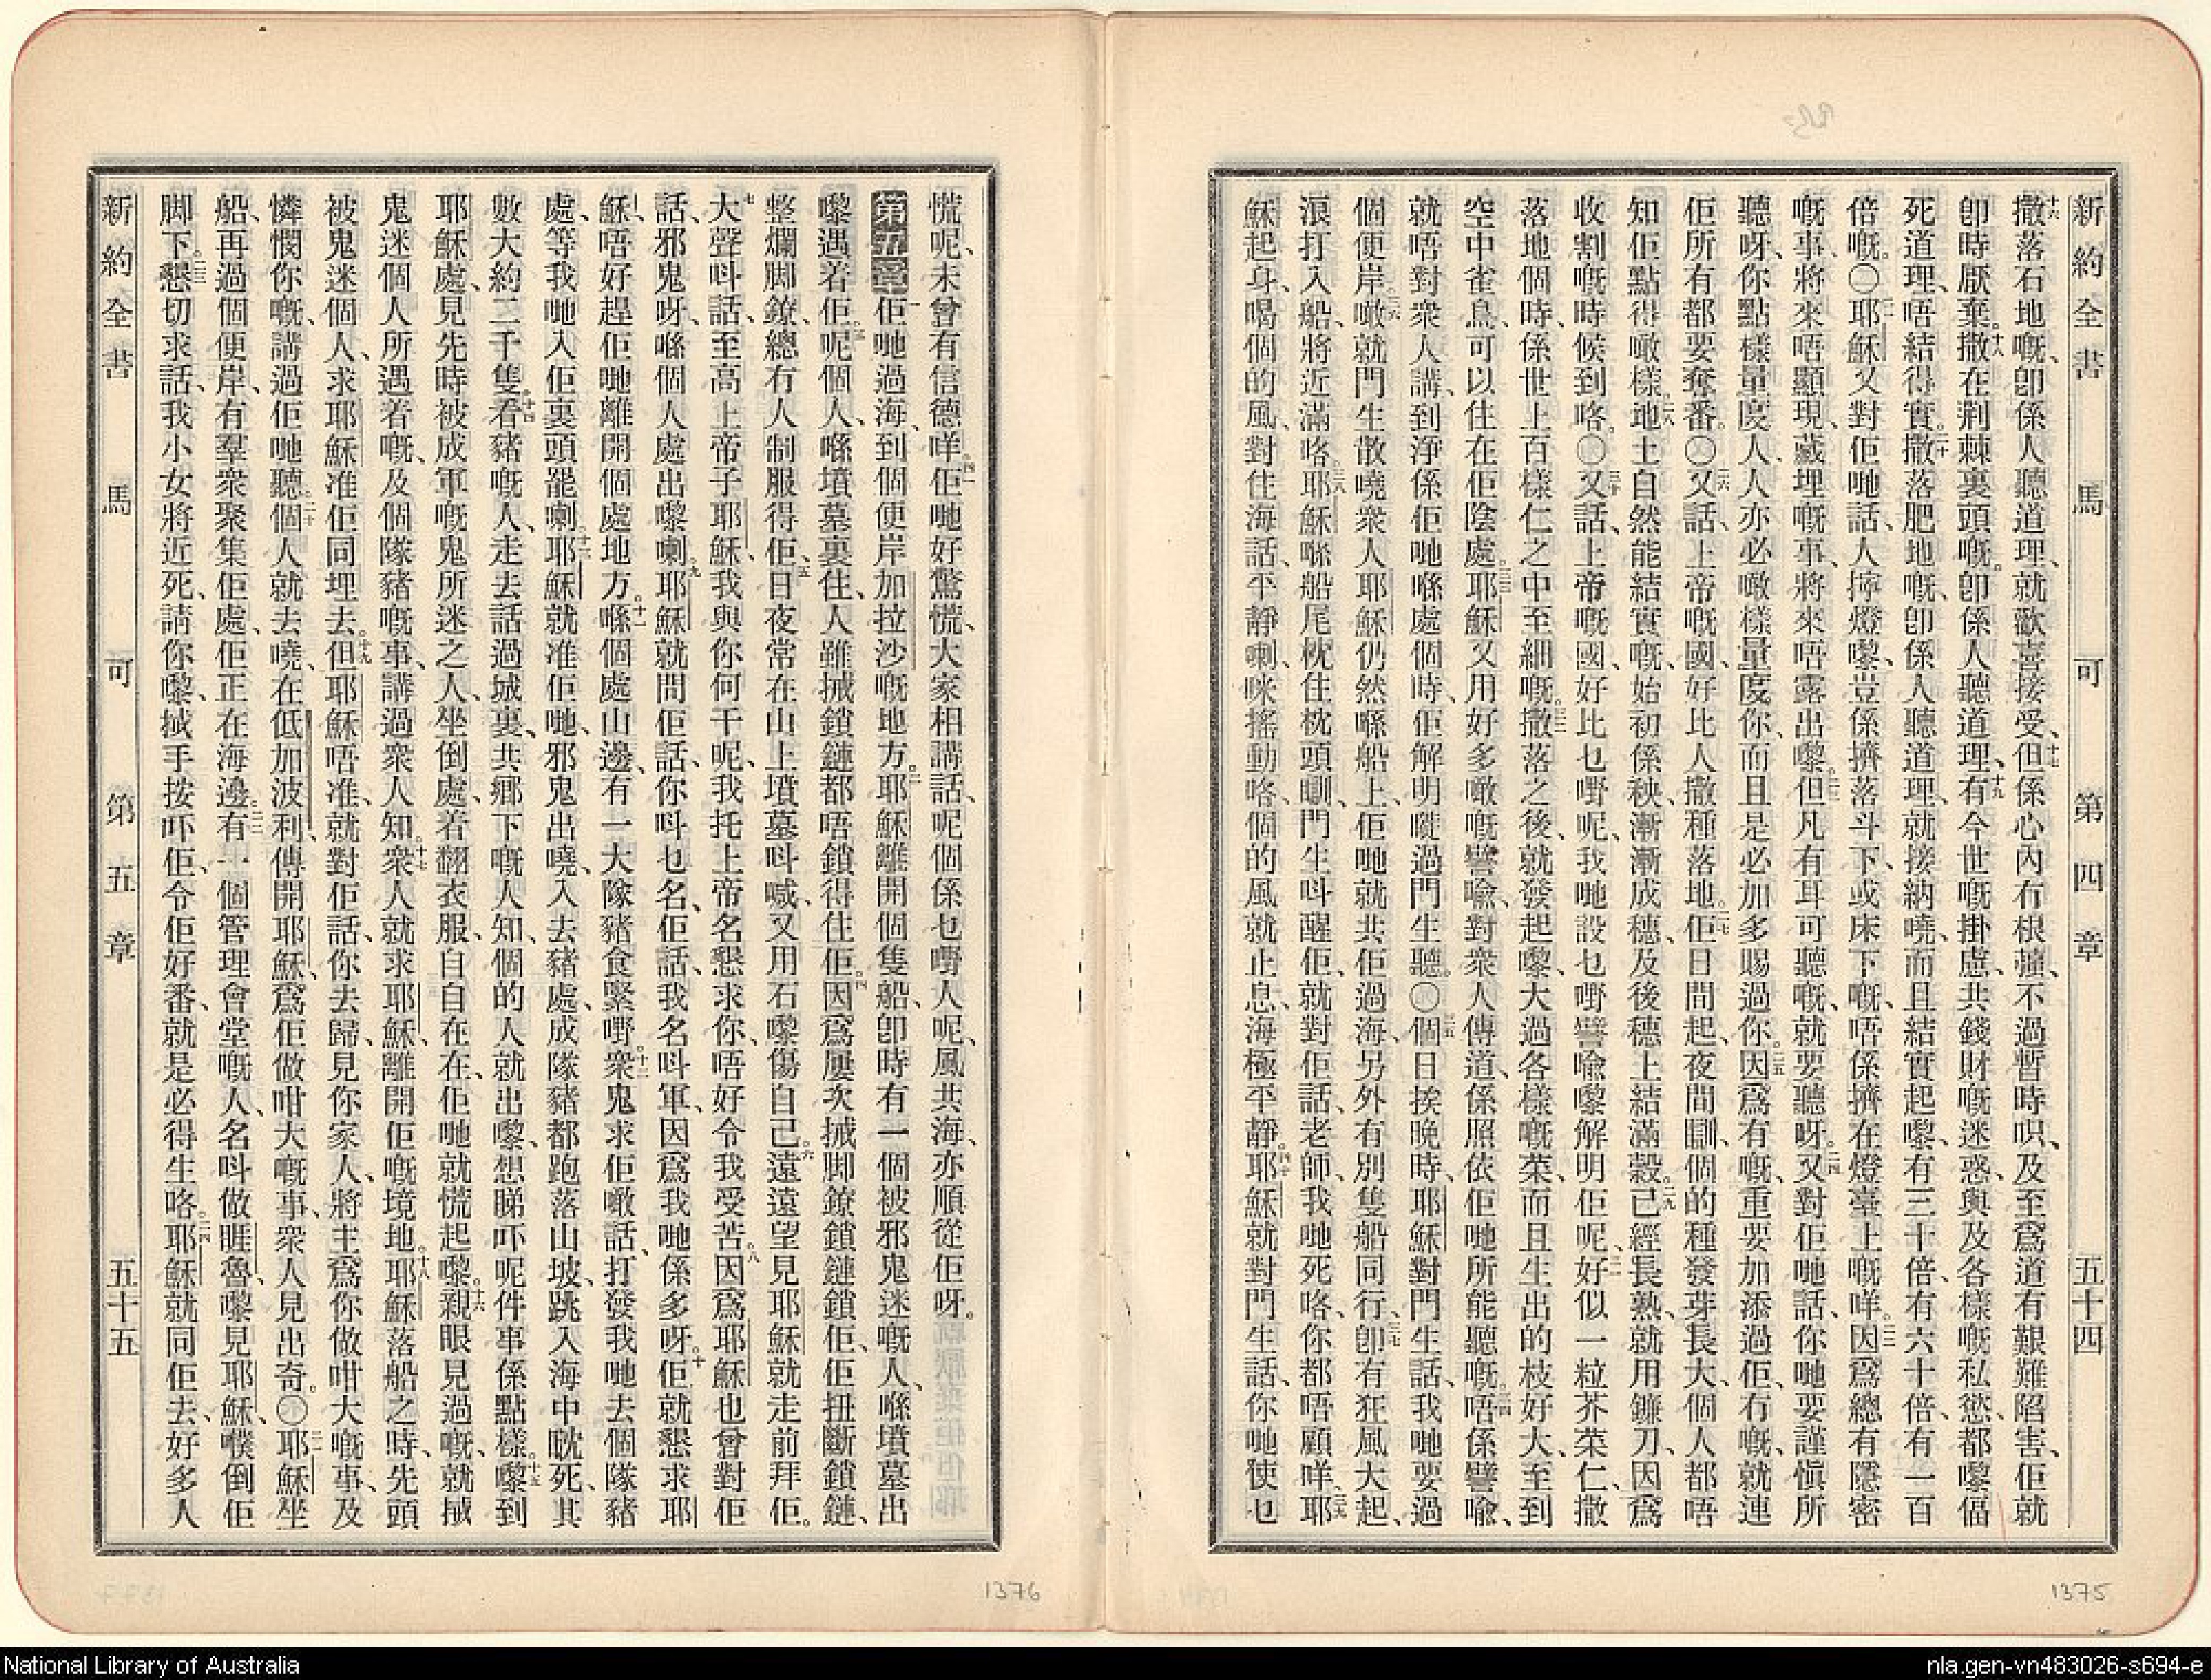 新約全書 馬可 第四章 五十四
十六撒落石地嘅、卽係人聽道理、就歡喜接受、十七但係心內冇根蘊、不過暫時呮、及至爲道有艱難陷害、佢就
卽時厭棄。十八撒在荆棘裏頭嘅。卽係人聽道理、十九有今世嘅掛慮、共錢財嘅迷惑、與及各樣嘅私慾、都嚟偪
死道理、唔結得實。二十撒落肥地嘅、卽係人聽道理、就接納嘵、而且結實起嚟、有三十倍、有六十倍、有一百
倍嘅。〇二一耶穌又對佢哋話、人擰燈嚟、豈係擠落斗下、或床下嘅、唔係擠在燈臺上嘅咩。二二因爲總冇隱密
嘅事、將來唔顯現、藏埋嘅事、將來唔露出嚟。二三但凡有耳可聽嘅、就要聽呀。二四又對佢哋話、你哋要謹愼所
聽呀、你點樣量度人、人亦必噉樣量度你、而且是必加多賜過你。二五因爲有嘅、重要加添過佢、冇嘅、就連
佢所有都要奪番。〇二六又話、上帝嘅國、好比人撒種落地。二七佢日間起、夜間瞓、個的種發芽長大、個人都唔
知佢點得噉樣。二八地土自然能結實嘅、始初係秧、漸漸成穗、及後穗上結滿穀。二九已經長熟、就用鐮刀、因爲
收割嘅時候到咯。〇三十又話、上帝嘅國、好比乜嘢呢、我哋設乜嘢譬喻嚟解明佢呢、三一好似一粒芥菜仁、撒
落地個時、係世上百樣仁之中至細嘅。三二撒落之後、就發起嚟、大過各樣嘅菜、而且生出的枝好大、至到
空中雀鳥、可以住在佢陰處。三三耶穌又用好多噉嘅譬喻、對衆人傳道、係照依佢哋所能聽嘅。三四唔係譬喻、
就唔對衆人講、到淨係佢哋喺處個時、佢解明嘥過門生聽。〇三五個日挨晚時、耶穌對門生話、我哋要過
個便岸。三六噉就門生散嘵衆人、耶穌仍然喺船上、佢哋就共佢過海、另外有別隻船同行、三七卽有狂風大起、
浪打入船、將近滿咯。三八耶穌喺船尾枕住枕頭瞓、門生呌醒佢、就對佢話、老師、我哋死咯、你都唔顧咩、三九耶
穌起身、喝個的風、對住海話、平靜喇、咪搖動咯、個的風就止息、海極平靜。四十耶穌就對門生話、你哋使乜
慌呢、未曾有信德咩。四一佢哋好驚慌、大家相講話、呢個係乜嘢人呢、風共海、亦順從佢呀。
第五章一佢哋過海、到個便岸加拉沙嘅地方。二耶穌離開個隻船、卽時有一個被邪鬼迷嘅人、喺墳墓出
嚟遇着佢。三呢個人、喺墳墓裏住、人雖搣鎖鏈都唔鎖得住佢。四因爲屢次搣脚鐐鎖鏈鎖佢、佢扭斷鎖鏈、
整爛脚鐐、總冇人制服得佢、五日夜常在山上墳墓呌喊、又用石嚟傷自己。六遠遠望見耶穌、就走前拜佢。
七大聲呌話、至高上帝子耶穌、我與你何干呢、我托上帝名懇求你、唔好令我受苦。八因爲耶穌也曾對佢
話、邪鬼呀、喺個人處出嚟喇。九耶穌就問佢話、你呌乜名、佢話、我名呌軍、因爲我哋係多呀。十佢就懇求耶
穌、唔好趕佢哋離開個處地方。十一喺個處山邊、有一大隊豬食緊嘢。十二衆鬼求佢噉話、打發我哋去個隊豬
處、等我哋入佢裏頭罷喇。十三耶穌就准佢哋、邪鬼出嘵、入去豬處、成隊豬都跑落山坡、跳入海中䀯死、其
數大約二千隻。十四看豬嘅人、走去話過城裏、共鄉下嘅人知、個的人就出嚟、想睇吓呢件事係點樣。十五嚟到
耶穌處、見先時被成軍嘅鬼所迷之人、坐倒處、着翻衣服、自自在在、佢哋就慌起嚟。十六親眼見過嘅、就搣
鬼迷個人所遇着嘅、及個隊豬嘅事、講過衆人知。十七衆人就求耶穌、離開佢嘅境地。十八耶穌落船之時、先頭
被鬼迷個人、求耶穌准佢同埋去。十九但耶穌唔准、就對佢話、你去歸、見你家人、將主爲你做咁大嘅事、及
憐憫你嘅、講過佢哋聽。二十個人就去嘵、在低加波利、傳開耶穌、爲佢做咁大嘅事、衆人見出奇。〇二一耶穌坐
船、再過個便岸、有羣衆聚集佢處、佢正在海邊。二二有一個管理會堂嘅人、名呌做睚魯、嚟見耶穌、噗倒佢
脚下。二三懇切求話、我小女將近死、請你嚟、搣手按吓佢、令佢好番、就是必得生咯。二四耶穌就同佢去、好多人
新約全書 馬可 第五章 五十五
1376
1375
National Library of Australia
nla.gen-vn483026-s694-e